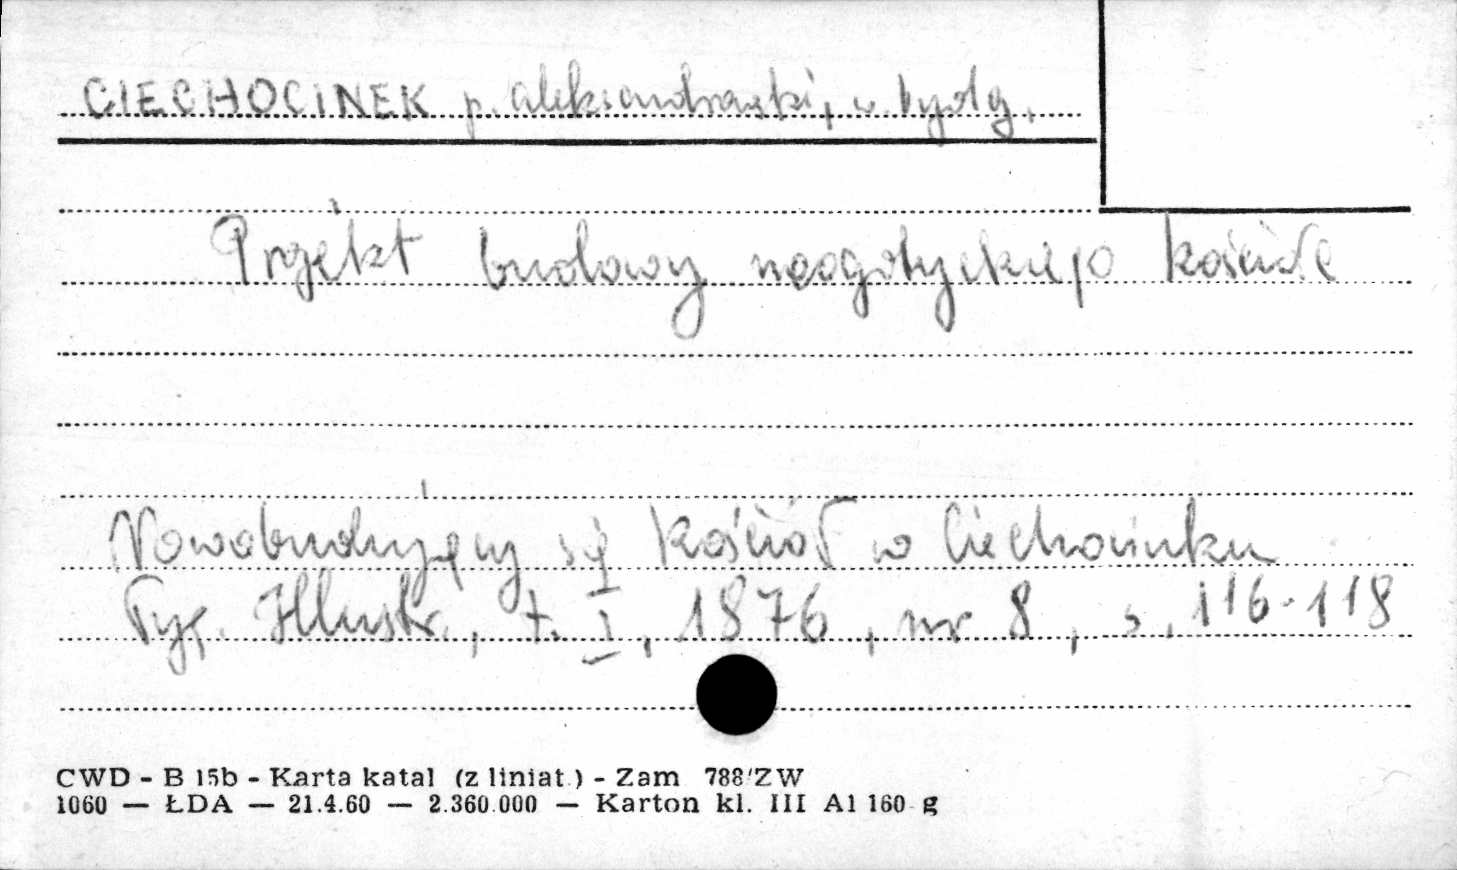 CIECHOCINEK p. aleksandrowski, w. bydg.
Projekt budowy neogotyckiego kościoła
Nowobudujący się Kościół w Ciechocinku
Tyg. Illustr., t. I, 1876, nr 8, s. 116-118
CWD - B 15b - Karta katal (z liniat.) - Zam 788/ZW
1060 — ŁDA — 21.4.60 — 2.360.000 — Karton kl. III A1 160 g